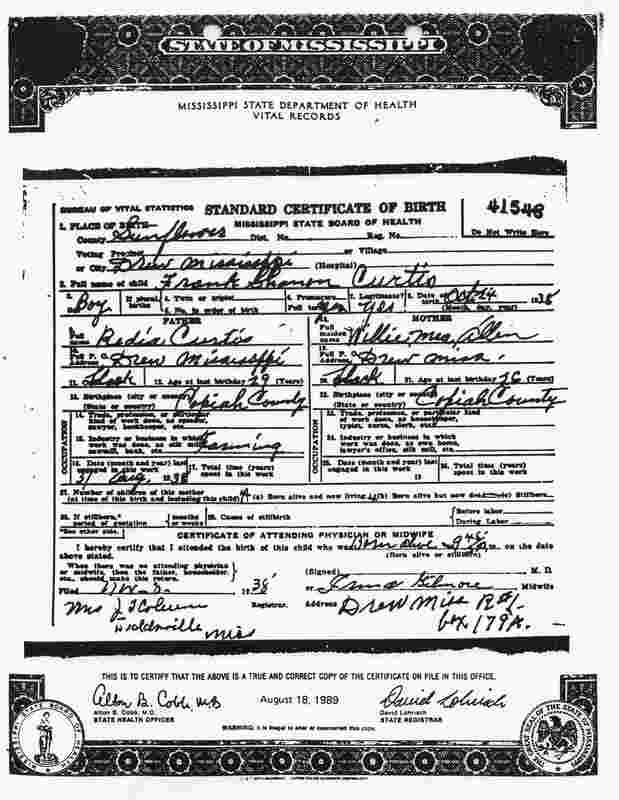 STATE OF MISSISSIPPI
MISSISSIPPI STATE DEPARTMENT OF HEALTH
VITAL RECORDS
BUREAU OF VITAL STATISTICS STANDARD CERTIFICATE OF BIRTH 41548
1. PLACE OF BIRTH— MISSISSIPPI STATE BOARD OF HEALTH
County Sunflower Dist. No. Reg. No. Do Not Write Here
Voting Precinct or Village
or City Drew Mississippi (Hospital)
2. Full name of child Frank Curtis
3. Boy If plural births 4. Twin or triplet 5. No. in order of birth 6. Premature Full term 7. Legitimate? Yes 8. Date of birth Oct 24 1938
(Month, day, year)
FATHER MOTHER
Full name Curtis Full maiden name Willie Mea Allen
Full P. O. Address Drew Mississippi Full P. O. Address Drew Miss.
11. Black 12. Age at last birthday 29 (Years) 20. Black 21. Age at last birthday 26 (Years)
13. Birthplace (city or county) Copiah County Birthplace (city or county) Copiah County
(State or country) (State or country)
OCCUPATION 14. Trade, profession, or particular kind of work done, as spender, sawyer, bookkeeper, etc. OCCUPATION 23. Trade, profession, or particular kind of work done, as housekeeper, typist, nurse, clerk, etc.
15. Industry or business in which work was done, as silk mill, sawmill, bank, etc. Farming 24. Industry or business in which work was done, as own home, lawyer's office, silk mill, etc.
16. Date (month and year) last engaged in this work 1938 17. Total time (years) spent in this work 25. Date (month and year) last engaged in this work 19 26. Total time (years) spent in this work
27. Number of children of this mother (At time of this birth and including this child) (a) Born alive and now living (b) Born alive but now dead Stillborn
28. If stillborn,* period of gestation months or weeks 29. Cause of stillbirth Before labor During Labor
*See other side.
CERTIFICATE OF ATTENDING PHYSICIAN OR MIDWIFE
I hereby certify that I attended the birth of this child who was Born alive 9 45 m. on the date
above stated. (Born alive or stillborn)
When there was no attending physician or midwife, then the father, householder, etc., should make this return. (Signed) M. D.
Filed 1938 or Irma Gilmore Midwife
Mrs J Registrar. Address Drew Miss
Miss Box 179A.
THIS IS TO CERTIFY THAT THE ABOVE IS A TRUE AND CORRECT COPY OF THE CERTIFICATE ON FILE IN THIS OFFICE.
Alton B. Cobb, M.D. August 18, 1989 David Lohrisch
Alton B. Cobb, M.D. David Lohrisch
STATE HEALTH OFFICER STATE REGISTRAR
WARNING: It is illegal to alter or counterfeit this copy.
MISSISSIPPI STATE BOARD OF HEALTH
THE GREAT SEAL OF THE STATE OF MISSISSIPPI